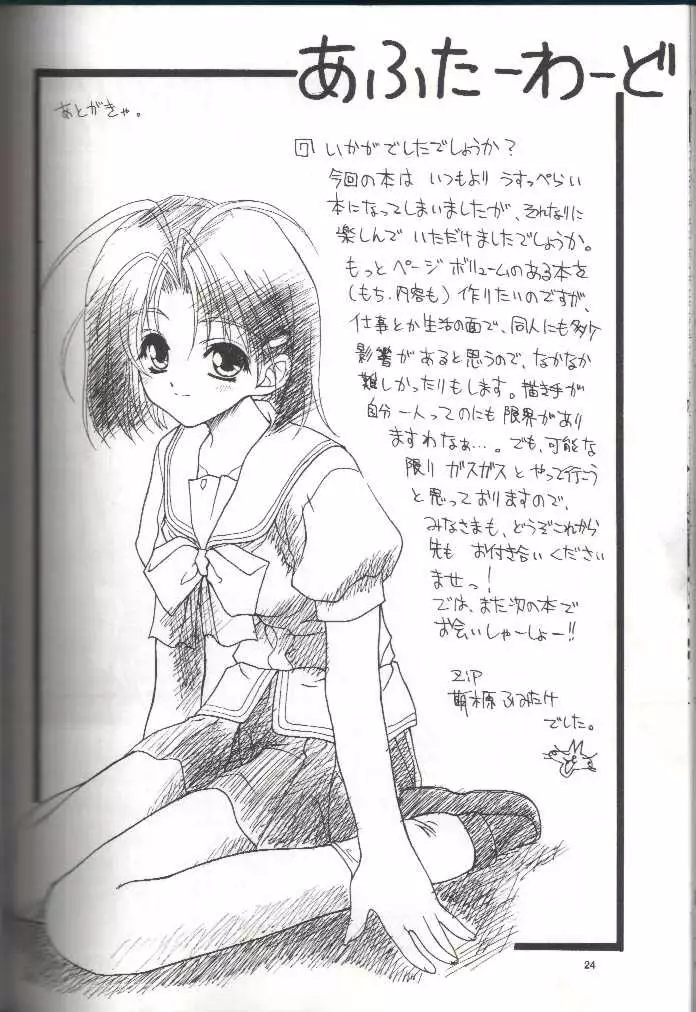 あふたーわーど
あとがきゃ。
いかがでしたでしょうか？
今回の本は いつもより うすっぺらい
本になってしまいましたが、それなりに
楽しんで いただけましたでしょうか。
もっと ページ ボリュームのある本を
（もち、内容も）作りたいのですが、
仕事とか生活の面で、同人にも多々
影響があると思うので、なかなか
難しかったりもします。描き手が
自分一人ってのにも 限界があり
ますわなぁ…。でも、可能な
限り ガスガスと やって行こう
と思っておりますので、
みなさまも、どうぞこれから
先も お付き合いください
ませっ！
では、また次の本で
お会いしゃーしょー!!
ZiP
萌木原ふみたけ
でした。
24